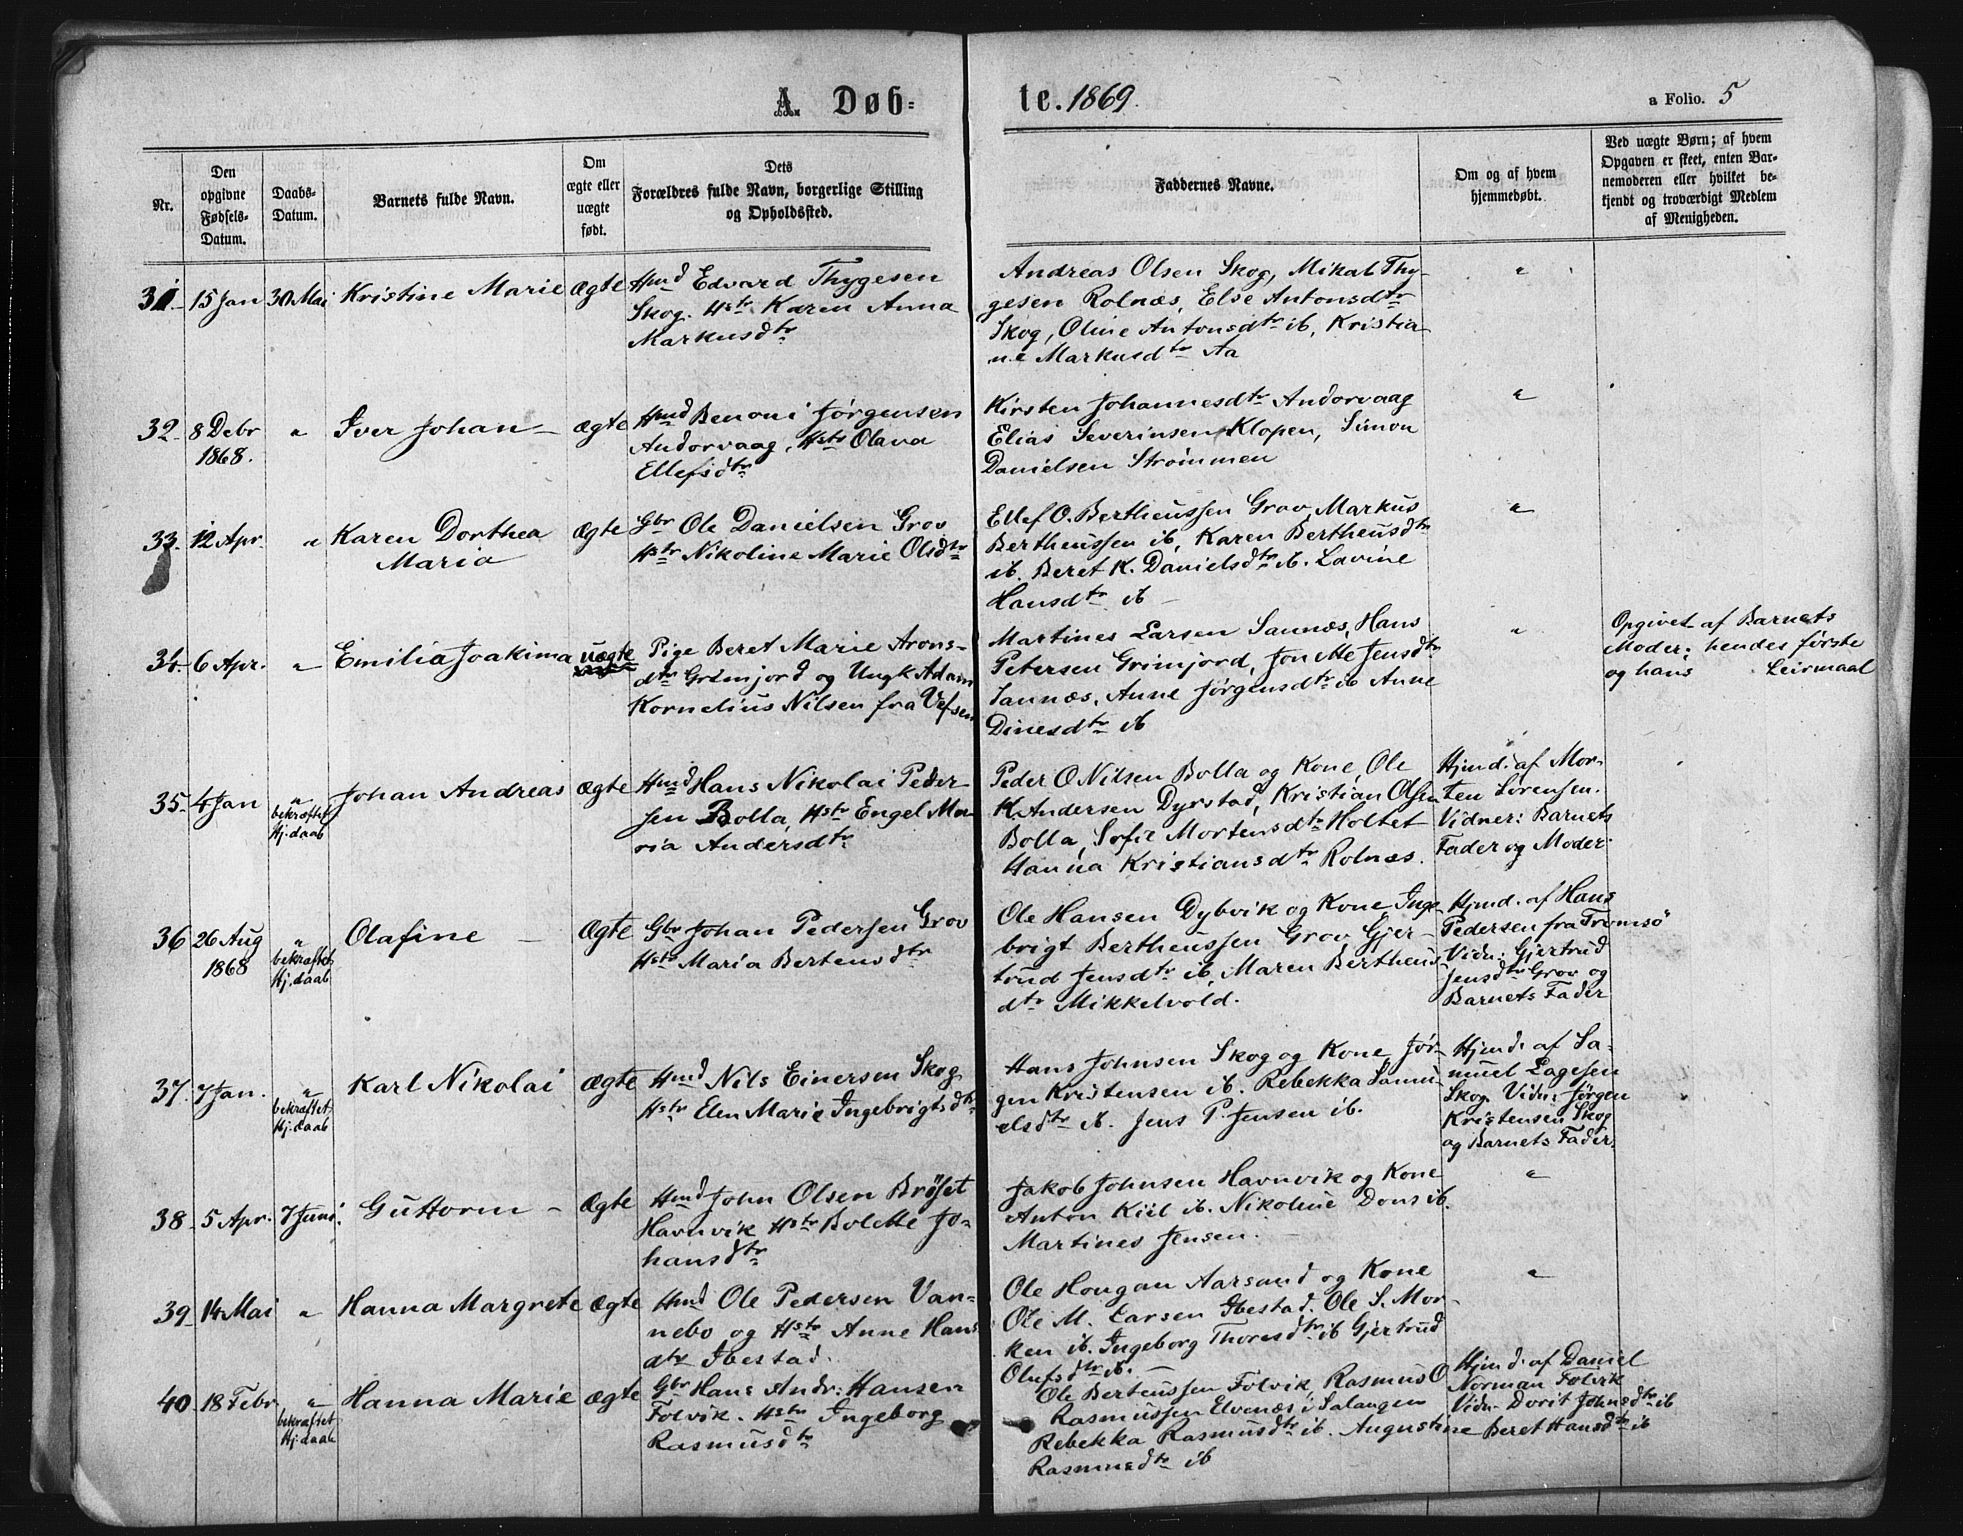 A. Døb=
te. 1869.
a Folio. 5
Nr.
Den
opgivne
Fødsels-
Datum.
Daabs-
Datum.
Barnets fulde Navn.
Om
ægte eller
uægte
født.
Dets
Forældres fulde Navn, borgerlige Stilling
og Opholdssted.
Faddernes Navne.
Om og af hvem
hjemmedøbt.
Ved uægte Børn; af hvem
Opgaven er skeet, enten Bar-
nemoderen eller hvilket be-
kjendt og troværdigt Medlem
af Menigheden.
31. 15 Jan 30 Mai Kristine Marie ægte
Hmd Edvard Thygesen
Skog. Hstr Karen Anna
Markusdtr
Andreas Olsen Skog, Mikal Thy-
gesen Rolnæs, Else Antonsdtr
Skog, Oline Antonsdtr ib, Kristia
ne Markusdtr Aa
"
32. 8 Debr " Iver Johan — ægte
1868.
Hmd Benoni Jørgensen
Andorvaag, Hstr Olava
Ellefsdtr
Kirsten Johannesdtr Andorvaag
Elias Severinsen Klopen, Simon
Danielsen Strømmen
"
33. 12 Apr. " Karen Dorthea ægte
Maria
Gbr Ole Danielsen Grov
Hstr Nikoline Marie Olsdtr
Ellef O. Bertheussen Grov, Markus
Bertheussen ib, Karen Bertheusdtr
ib. Beret K. Danielsdtr ib. Lavine
Hansdtr ib —
"
34. 6 Apr. " Emilia Joakima uægte
Pige Beret Marie Arons-
dtr Grimjord og Ungk Adam
Kornelius Nilsen fra Vefsen
Martines Larsen Sannæs, Hans
Petersen Grimjord, Jonette Jensdtr
Sannæs, Anne Jørgensdtr ib Anne
Dinesdtr ib
"
Opgivet af Barnets
Moder; hendes første
og hans Leirmaal
35. 4 Jan " Johan Andreas ægte
bekræftet
Hj.daab
Hmd Hans Nikolai Peder
sen Bolla, Hstr Engel Ma
ria Andersdtr
Peder O Nilsen Bolla og Kone, Ole
K Andersen Dyrstad, Kristian Olsen
Bolla, Sofie Mortensdtr Holtet
Hanna Kristiansdtr Rolnæs.
Hjmd. af Mor-
ten Sørensen.
Vidner: Barnets
Fader og Moder.
36 26 Aug " Olafine — Ægte
1868
bekræftet
Hj.daab
Gbr Johan Pedersen Grov
Hstr Maria Bertensdtr
Ole Hansen Dybvik og Kone Inge
brigt Bertheussen Grov Gjer-
trud Jensdtr ib, Maren Bertheus
dtr Mikkelvold.
Hjmd. af Hans
Pedersen fra Tromsø
Vidn: Gjertrud
Jensdtr Grov og
Barnets Fader
37. 7 Jan. " Karl Nikolai ægte
bekræftet
Hj.daab
Hmd Nils Einersen Skog
Hstr Elen Marie Ingebrigtsdtr
Hans Johnsen Skog og Kone Jør-
gen Kristensen ib. Rebekka Samu-
elsdtr ib. Jens P. Jensen ib.
Hjmd. af Sa-
muel Lagesen
Skog. Vidn: Jørgen
Kristensen Skog
og Barnets Fader.
38. 5 Apr. 7 Juni. Guttorm — Ægte
Hmd John Olsen Brøset
Havnvik Hstr Bolette Jo-
hansdtr
Jakob Johnsen Havnvik og Kone
Anton Kiil ib. Nikoline Dons ib.
Martines Jensen.
"
39. 14 Mai " Hanna Margrete ægte
Hmd Ole Pedersen Van-
nebo og Hstr Anne Hans
dtr Ibestad.
Ole Hougan Aarsand og Kone
Ole M. Larsen Ibestad. Ole S. Mor-
ken ib. Ingeborg Thoresdtr ib Gjertrud
Olufsdtr ib.
"
40. 18 Febr " Hanna Marie ægte
bekræftet
Hj.daab
Gbr Hans Andr: Hansen
Folvik. Hstr Ingeborg
Rasmusdtr
Ole Berteussen Folvik, Rasmus O
Rasmussen Elvenæs i Salangen
Rebekka Rasmusdtr ib. Augustine
Rasmusdtr ib
Hjmd. af Daniel
Norman Folvik
Vidn. Dorit Johnsdtr ib
Beret Hansdtr ib